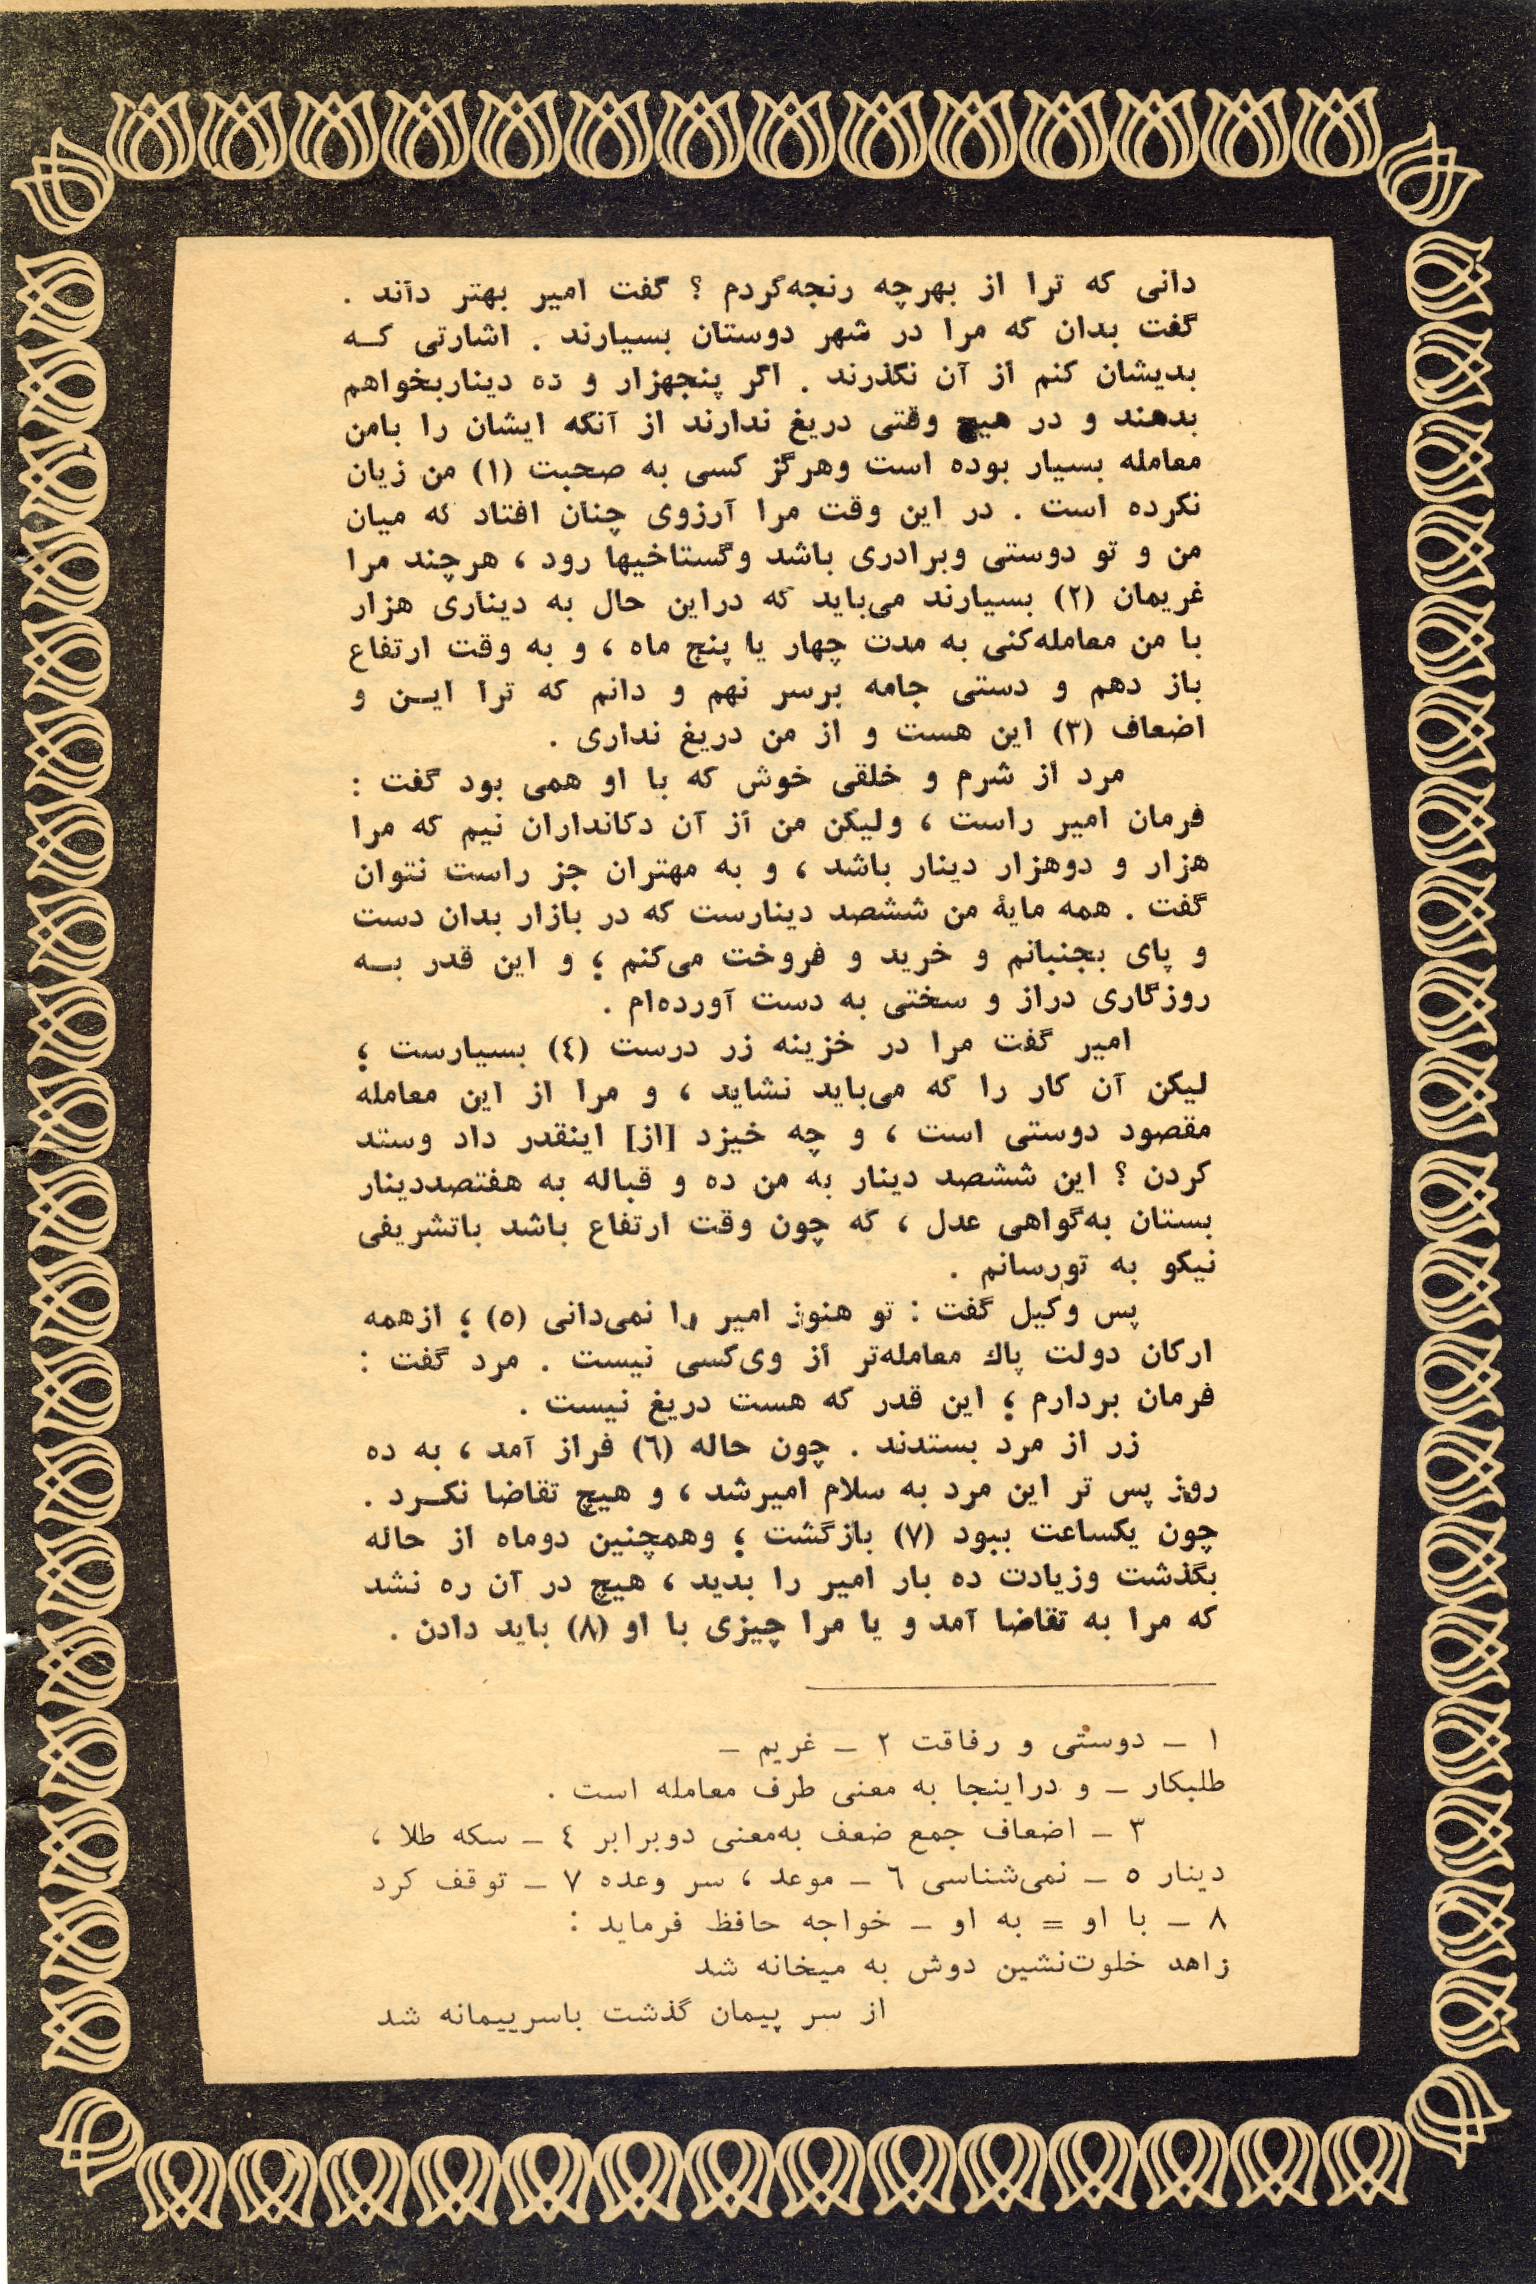 دانی که ترا از بهرچه رنجه‌کردم ؟ گفت امیر بهتر داند .
گفت بدان که مرا در شهر دوستان بسیارند . اشارتی که
بدیشان کنم از آن نگذرند . اگر پنجهزار و ده دیناربخواهم
بدهند و در هیچ وقتی دریغ ندارند از آنکه ایشان را بامن
معامله بسیار بوده است وهرگز کسی به صحبت (۱) من زیان
نکرده است . در این وقت مرا آرزوی چنان افتاد که میان
من و تو دوستی وبرادری باشد وگستاخیها رود ، هرچند مرا
غریمان (۲) بسیارند می‌باید که دراین حال به دیناری هزار
با من معامله‌کنی به مدت چهار یا پنج ماه ، و به وقت ارتفاع
باز دهم و دستی جامه برسر نهم و دانم که ترا این و
اضعاف (۳) این هست و از من دریغ نداری .
مرد از شرم و خلقی خوش که با او همی بود گفت :
فرمان امیر راست ، ولیکن من از آن دکانداران نیم که مرا
هزار و دوهزار دینار باشد ، و به مهتران جز راست نتوان
گفت . همه مایهٔ من ششصد دینارست که در بازار بدان دست
و پای بجنبانم و خرید و فروخت می‌کنم ؛ و این قدر به
روزگاری دراز و سختی به دست آورده‌ام .
امیر گفت مرا در خزینه زر درست (٤) بسیارست ؛
لیکن آن کار را که می‌باید نشاید ، و مرا از این معامله
مقصود دوستی است ، و چه خیزد [از] اینقدر داد وستد
کردن ؟ این ششصد دینار به من ده و قباله به هفتصددینار
بستان به‌گواهی عدل ، که چون وقت ارتفاع باشد باتشریفی
نیکو به تورسانم .
پس وکیل گفت : تو هنوز امیر را نمی‌دانی (٥) ؛ ازهمه
ارکان دولت پاك معامله‌تر از وی‌کسی نیست . مرد گفت :
فرمان بردارم ؛ این قدر که هست دریغ نیست .
زر از مرد بستدند . چون حاله (٦) فراز آمد ، به ده
روز پس تر این مرد به سلام امیرشد ، و هیچ تقاضا نکرد .
چون یکساعت ببود (۷) بازگشت ؛ وهمچنین دوماه از حاله
بگذشت وزیادت ده بار امیر را بدید ، هیچ در آن ره نشد
که مرا به تقاضا آمد و یا مرا چیزی با او (۸) باید دادن .
۱ ـ دوستی و رفاقت ۲ ـ غریم ـ
طلبکار ـ و دراینجا به معنی طرف معامله است .
۳ ـ اضعاف جمع ضعف به‌معنی دوبرابر ٤ ـ سکه طلا ،
دینار ٥ ـ نمی‌شناسی ٦ ـ موعد ، سر وعده ۷ ـ توقف کرد
۸ ـ با او = به او ـ خواجه حافظ فرماید :
زاهد خلوت‌نشین دوش به میخانه شد
از سر پیمان گذشت باسرپیمانه شد